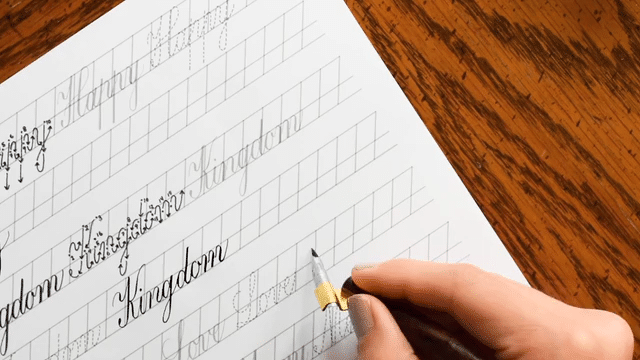 appy Happy Happy
gdom Kingdom Kingdom
Kingdom
Love Love